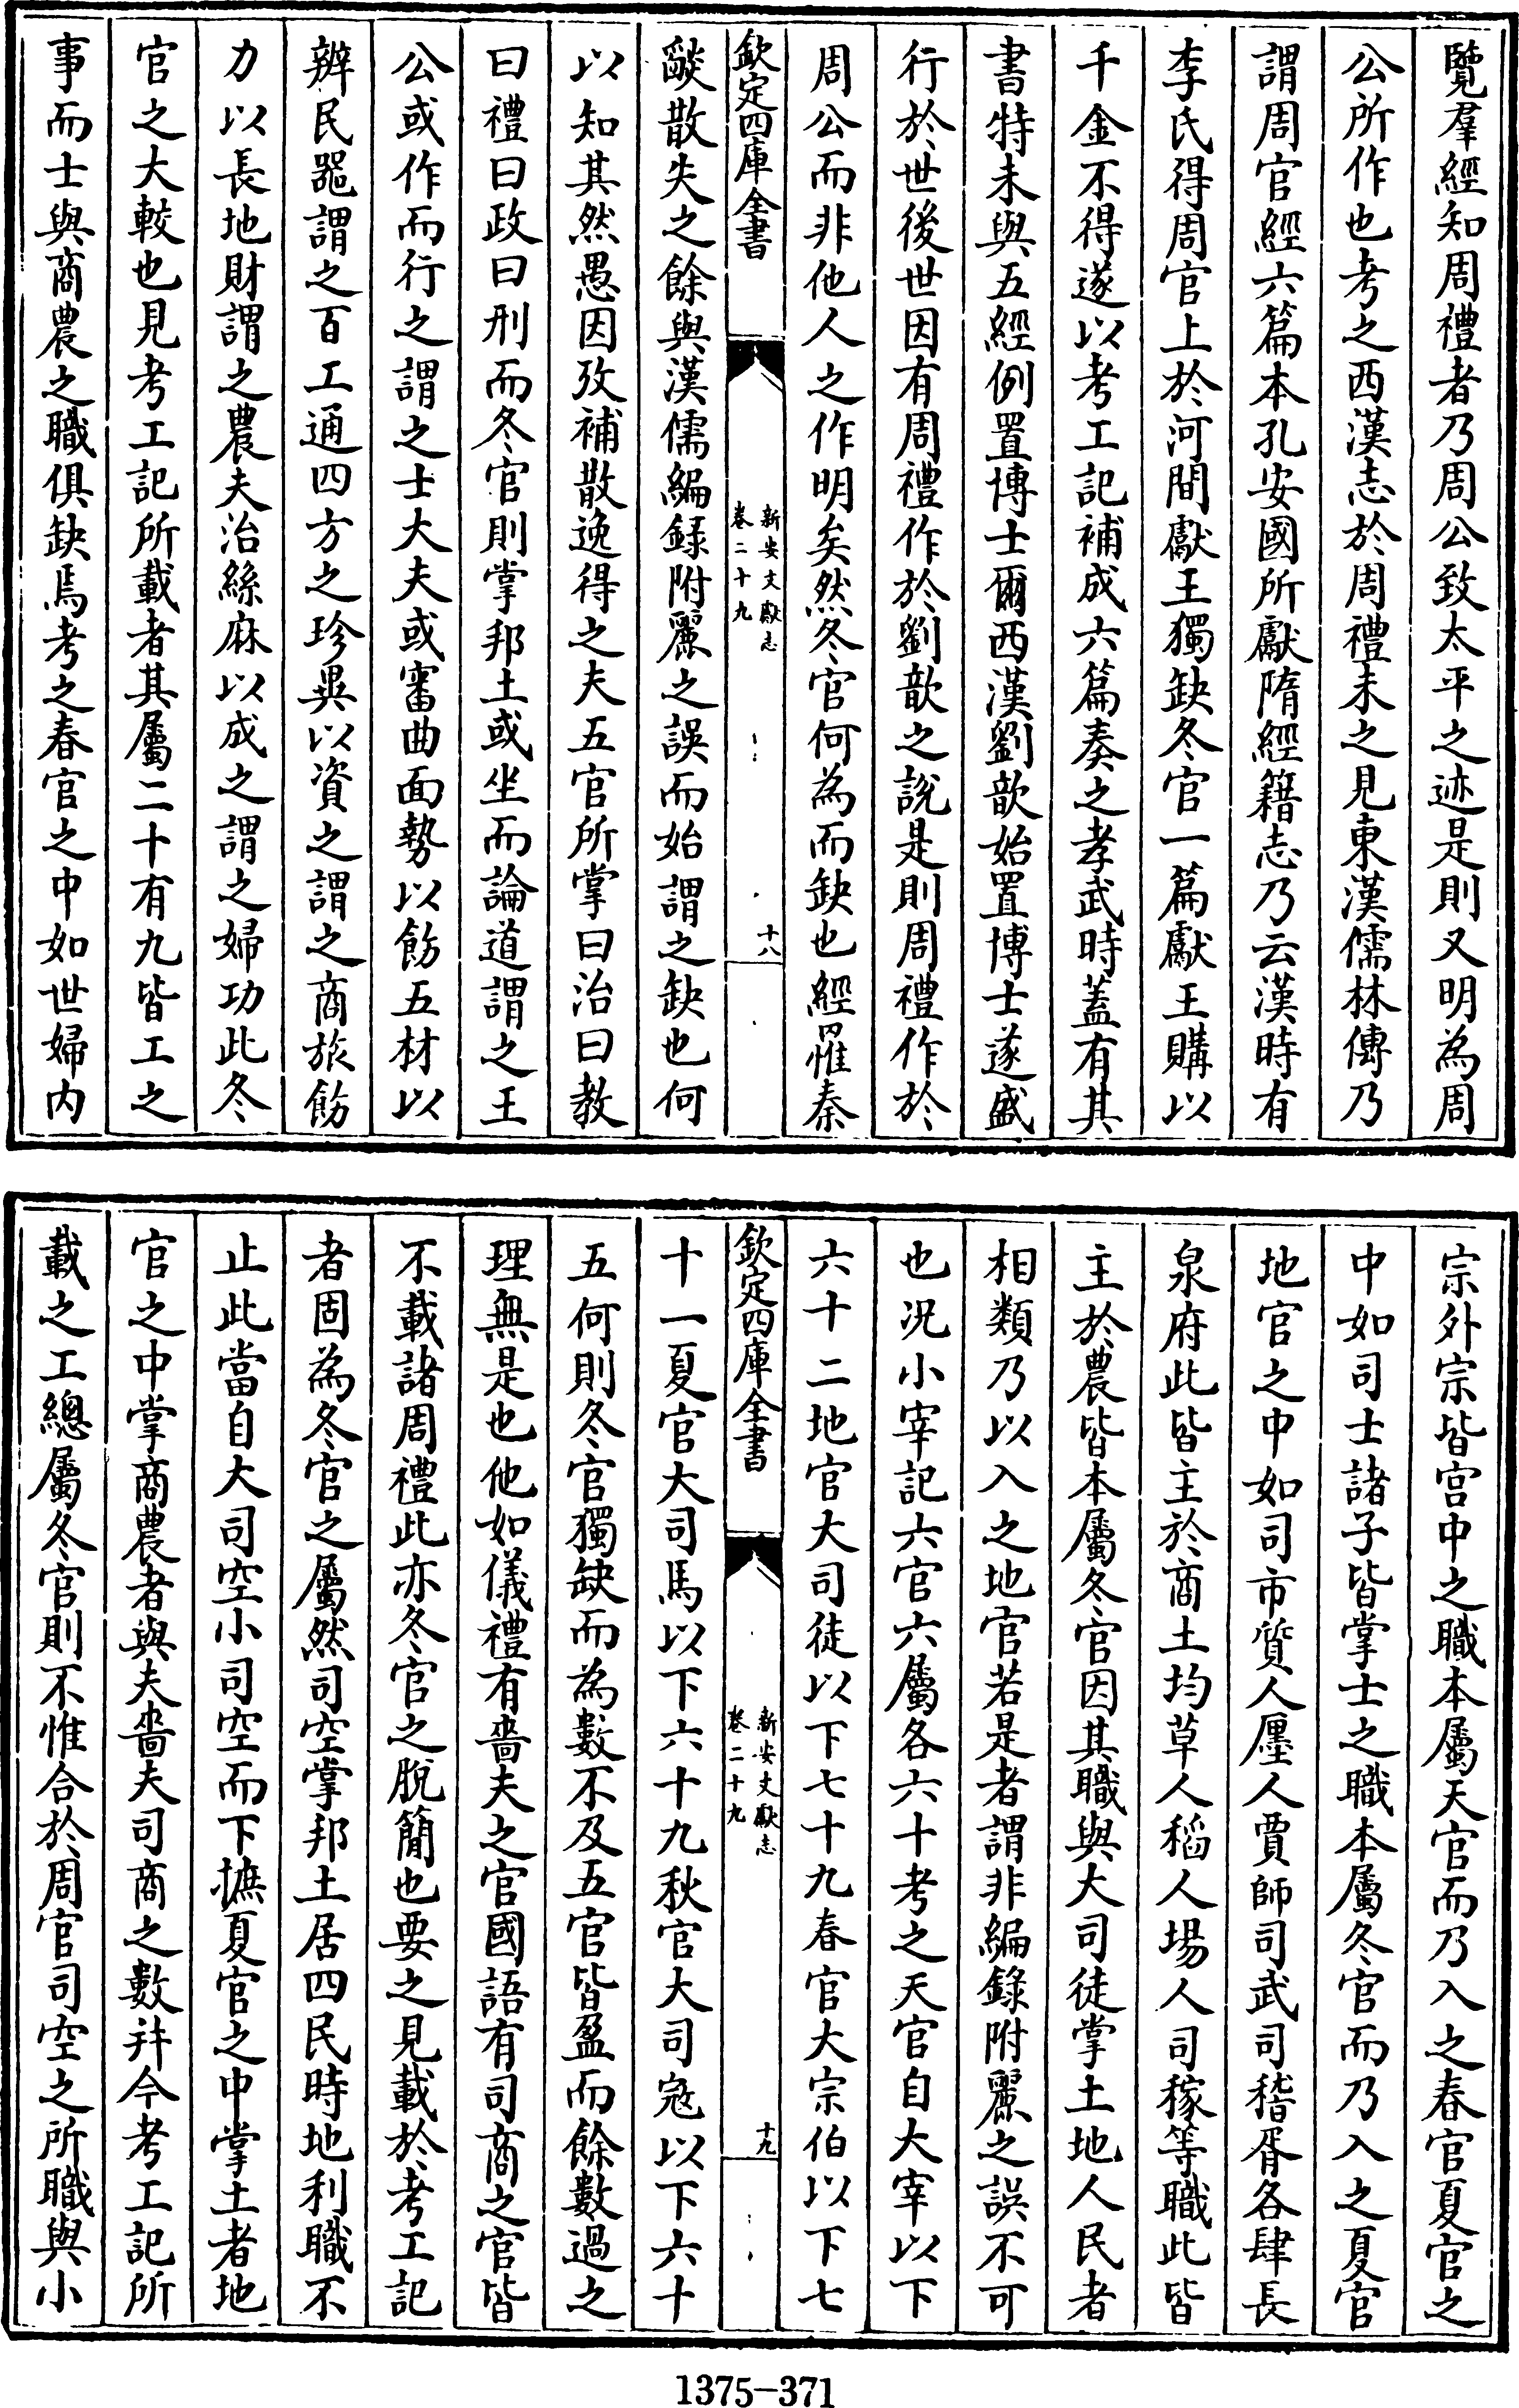 覽羣經知周禮者乃周公致太平之迹是則又明為周
公所作也考之西漢志於周禮未之見東漢儒林傳乃
謂周官經六篇本孔安國所獻隋經籍志乃云漢時有
李氏得周官上於河間獻王獨缺冬官一篇獻王購以
千金不得遂以考工記補成六篇奏之孝武時蓋有其
書特未與五經例置博士爾西漢劉歆始置博士遂盛
行於世後世因有周禮作於劉歆之說是則周禮作於
周公而非他人之作明矣然冬官何為而缺也經罹秦
欽定四庫全書
新安文獻志
卷二十九
十八
燄散失之餘與漢儒編録附麗之誤而始謂之缺也何
以知其然愚因攷補散逸得之夫五官所掌曰治曰教
曰禮曰政曰刑而冬官則掌邦土或坐而論道謂之王
公或作而行之謂之士大夫或審曲面勢以飭五材以
辨民器謂之百工通四方之珍異以資之謂之商旅飭
力以長地財謂之農夫治絲麻以成之謂之婦功此冬
官之大較也見考工記所載者其屬二十有九皆工之
事而士與商農之職俱缺焉考之春官之中如世婦内
宗外宗皆宫中之職本屬天官而乃入之春官夏官之
中如司士諸子皆掌士之職本屬冬官而乃入之夏官
地官之中如司市質人廛人賈師司武司稽胥各肆長
泉府此皆主於商土均草人稻人場人司稼等職此皆
主於農皆本屬冬官因其職與大司徒掌土地人民者
相類乃以入之地官若是者謂非編錄附麗之誤不可
也况小宰記六官六屬各六十考之天官自大宰以下
六十二地官大司徒以下七十九春官大宗伯以下七
欽定四庫全書
新安文獻志
卷二十九
十九
十一夏官大司馬以下六十九秋官大司寇以下六十
五何則冬官獨缺而為數不及五官皆盈而餘數過之
理無是也他如儀禮有嗇夫之官國語有司商之官皆
不載諸周禮此亦冬官之脫簡也要之見載於考工記
者固為冬官之屬然司空掌邦土居四民時地利職不
止此當自大司空小司空而下摭夏官之中掌土者地
官之中掌商農者與夫嗇夫司商之數幷今考工記所
載之工總屬冬官則不惟合於周官司空之所職與小
1375-371